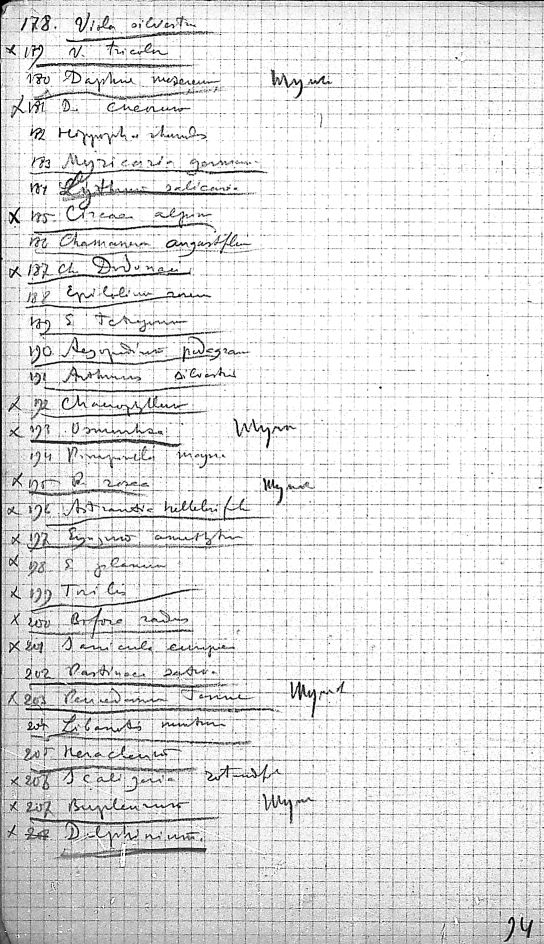 178. Viola silvestris
x 179 V. tricolor
180 Daphne mezereum
x 181 D. cneorum
182 Hippoph. rhamnoides
183 Myricaria german.
184 Lythrum salicaria
x 185 Circaea alpina
186 Chamaener angustifolium
x 187 Ch. Dodonaei
188 Epilobium roseum
189 E. tetragonum
190 Aegopodium podagraria
191 Anthriscus silvestris
x 192 Chaerophyllum
x 193
194 Pimpinella magna
x 195 P. rosea
x 196 Astrantia helleborifolia
x 197 Eryngium amethystinum
x 198 E. planum
x 199 Torilis
x 200 Bifora radians
x 201 Sanicula europea
202 Pastinaca sativa
x 203 Peucedanum
204 Libanotis montana
205 Heracleum
x 206 rotundif
x 207 Bupleurum
x Delphinium.
94